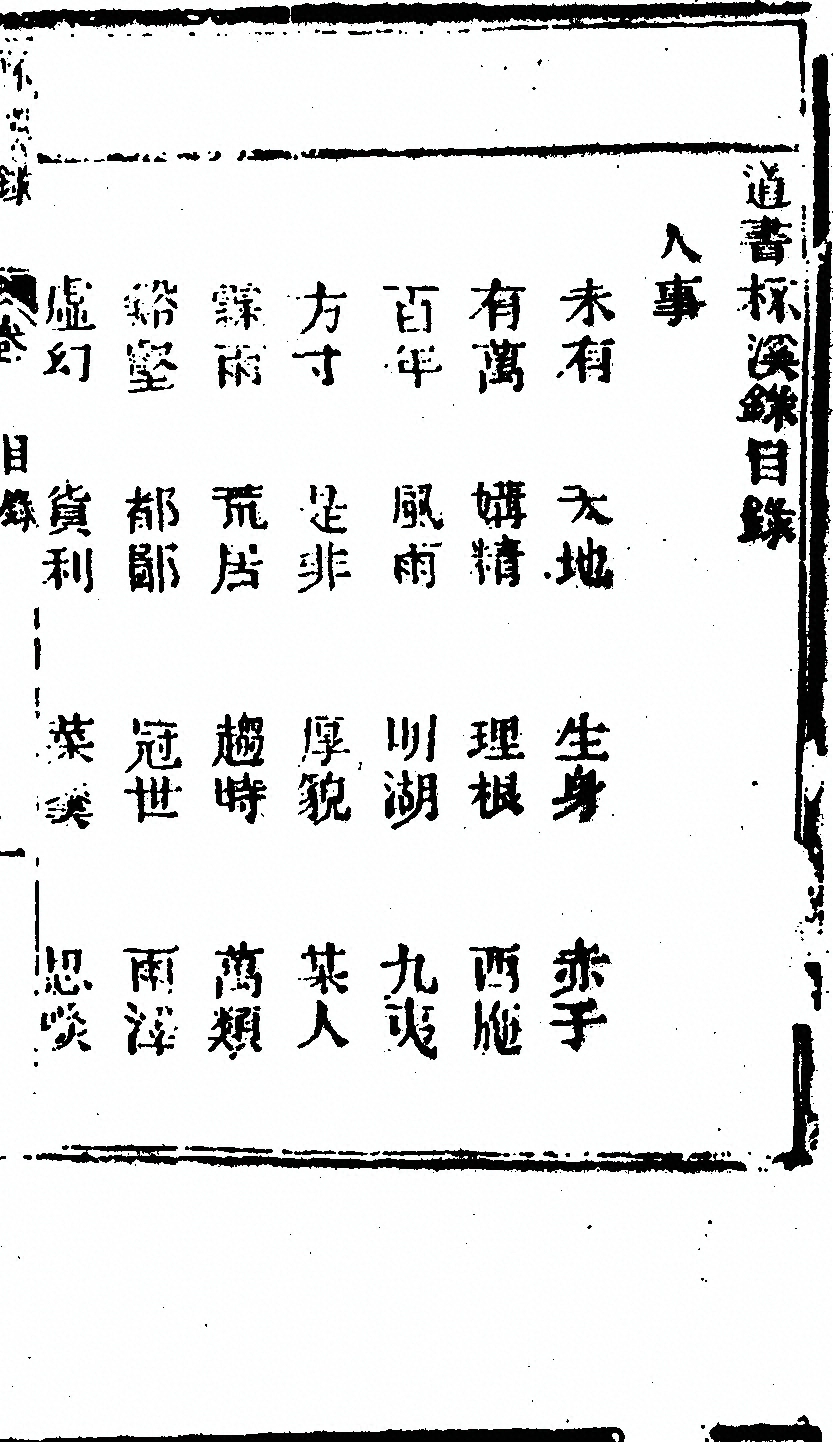 道書杯溪錄目錄
人事
未有 天地 生身 赤子
有萬 媾精 理根 西施
百年 風雨 明湖 九夷
方寸 是非 厚貌 某人
霖雨 荒居 趨時 萬類
谿壑 都鄙 冠世 雨澤
虛幻 貨利 葉 忍
錄 卷 目錄 一